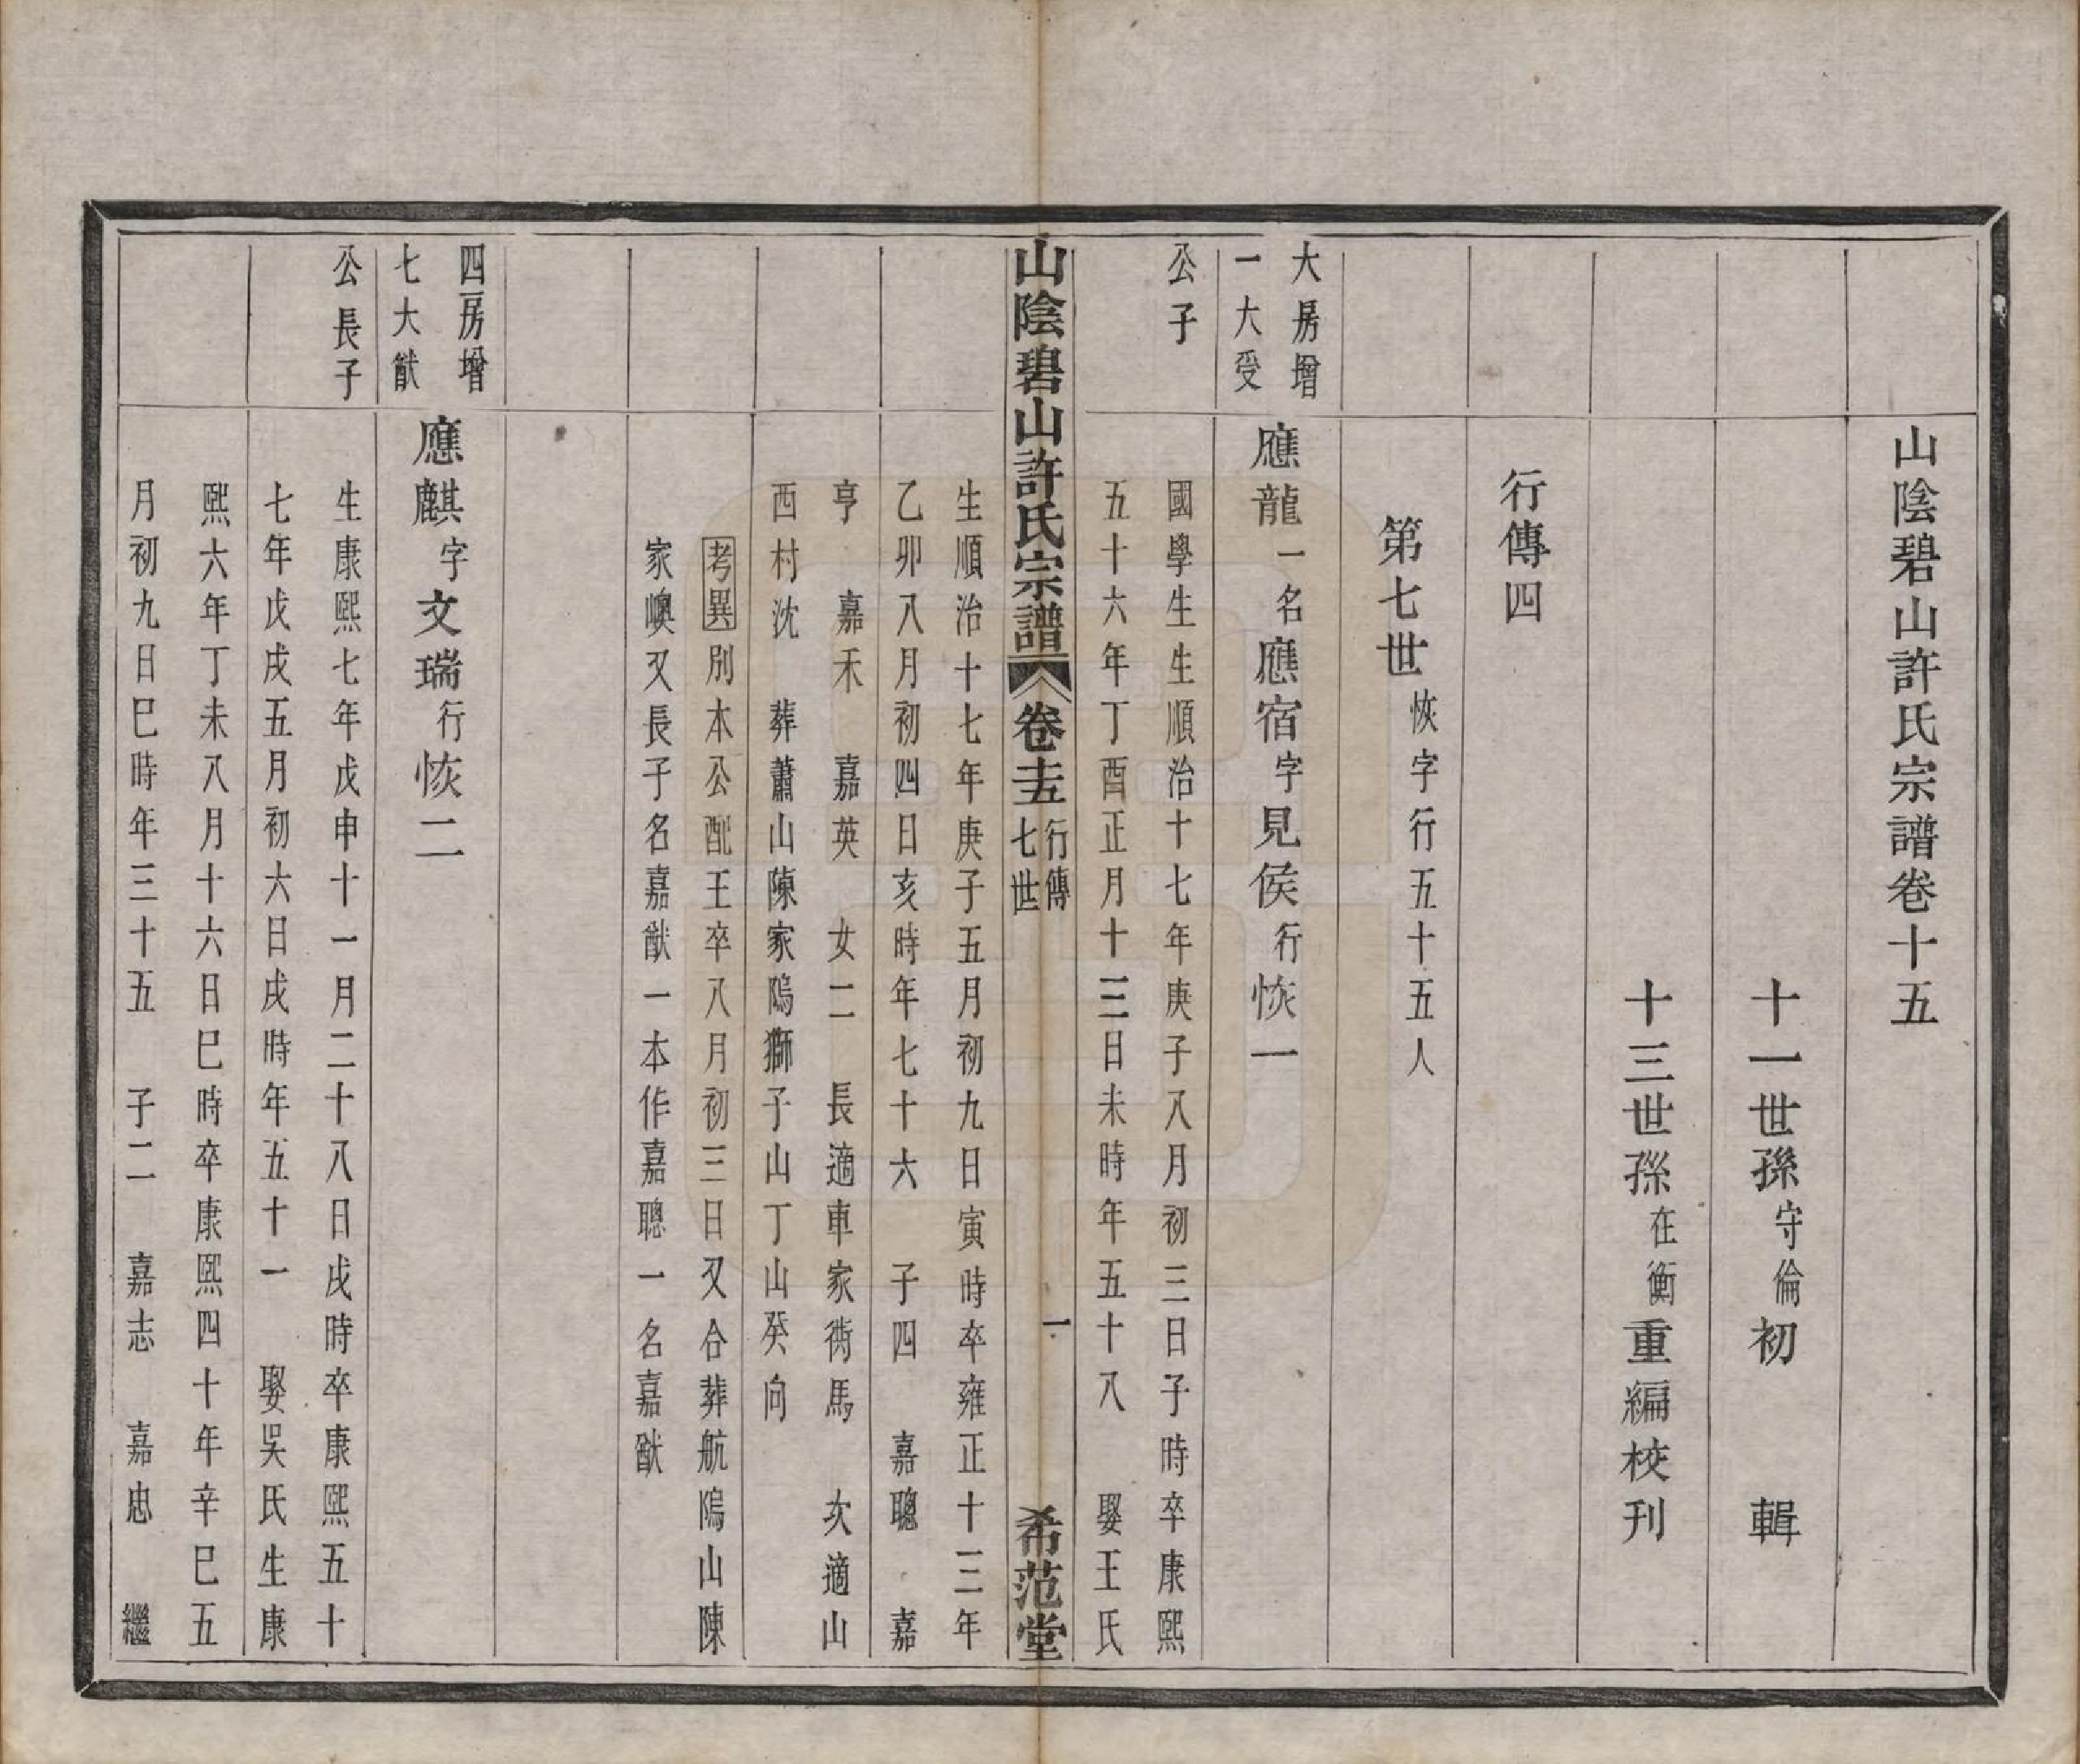 山陰碧山許氏宗譜卷十五
十一世孫守倫初輯
十三世孫在衡重編校刊
行傳四
第七世恢字行五十五人
大房增
一大受
公子
應龍一名應宿字見侯行恢一
國學生生順治十七年庚子八月初三日子時卒康熙
五十六年丁酉正月十三日未時年五十八 娶王氏
山陰碧山許氏宗譜 卷十五 行傳 七世 一 希范堂
生順治十七年庚子五月初九日寅時卒雍正十三年
乙卯八月初四日亥時年七十六 子四 嘉聰 嘉
亨 嘉禾 嘉英 女二 長適車家衖馬 次適山
西村沈 葬蕭山陳家塢獅子山丁山癸向
考異別本公配王卒八月初三日又合葬航塢山陳
家嶴又長子名嘉猷一本作嘉聰一名嘉猷
四房增
七大猷
公長子
應麒字文瑞行恢二
生康熙七年戊申十一月二十八日戌時卒康熙五十
七年戊戌五月初六日戌時年五十一 娶吳氏生康
熙六年丁未八月十六日巳時卒康熙四十年辛巳五
月初九日巳時年三十五 子二 嘉志 嘉忠 繼